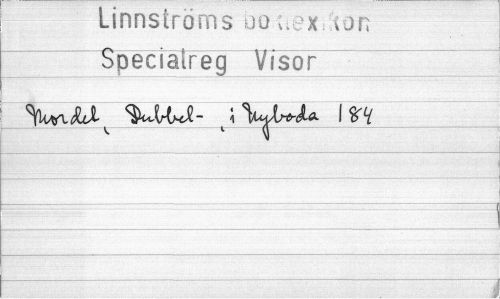 Linnströms boklexikon
Specialreg Visor
Mordet, Dubbel- , i Nyboda 184